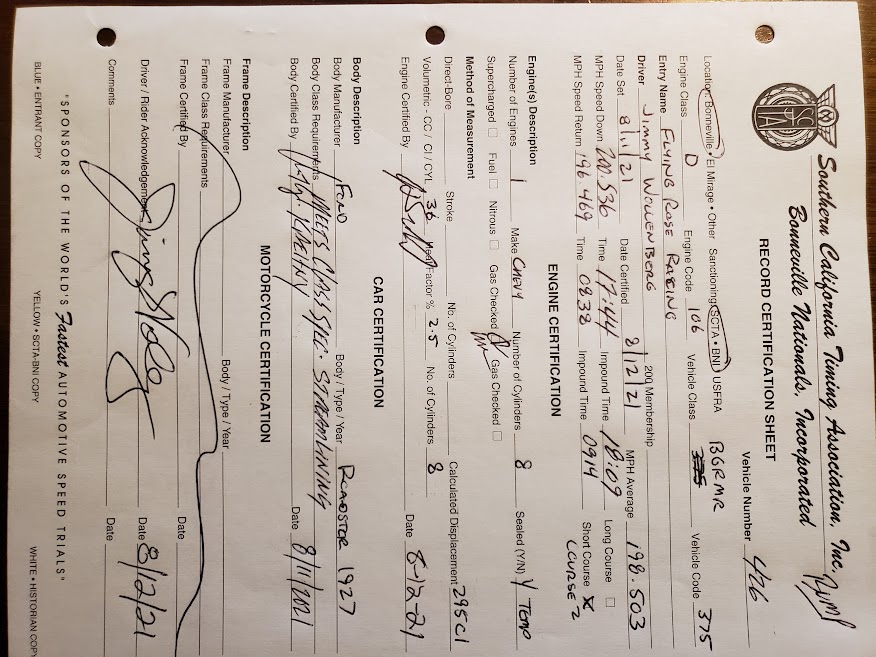 Southern California Timing Association, Inc.
Bonneville Nationals, Incorporated
SCTA
RECORD CERTIFICATION SHEET
Vehicle Number 426
Location: Bonneville • El Mirage • Other Sanctioning: SCTA • BNI USFRA
Engine Class D Engine Code 106 Vehicle Class BGRMR Vehicle Code 375
Entry Name FLYING ROSE RACING
Driver JIMMY WOLLENBERG 200 Membership
Date Set 8/11/21 Date Certified 8/12/21 MPH Average 198.503
MPH Speed Down 200.536 Time 17:44 Impound Time 18:09 Long Course
MPH Speed Return 196.469 Time 0838 Impound Time 0914 Short Course X
COURSE 2
ENGINE CERTIFICATION
Engine(s) Description
Number of Engines 1 Make CHEVY Number of Cylinders 8 Sealed (Y/N) Y TEMP
Supercharged Fuel Nitrous Gas Checked Gas Checked
Method of Measurement
Direct-Bore Stroke No. of Cylinders Calculated Displacement 295CI
Volumetric - CC / CI / CYL 36 Heat Factor % 2.5 No. of Cylinders 8
Engine Certified By Date 8-12-21
CAR CERTIFICATION
Body Description
Body Manufacturer FORD Body / Type / Year ROADSTER 1927
Body Class Requirements MEETS CLASS SPEC. STREAMLINING
Body Certified By Date 8/11/2021
MOTORCYCLE CERTIFICATION
Frame Description
Frame Manufacturer Body / Type / Year
Frame Class Requirements
Frame Certified By Date
Driver / Rider Acknowledgement Date 8/12/21
Comments Date
"SPONSORS OF THE WORLD'S Fastest AUTOMOTIVE SPEED TRIALS"
BLUE • ENTRANT COPY YELLOW • SCTA-BNI COPY WHITE • HISTORIAN COPY